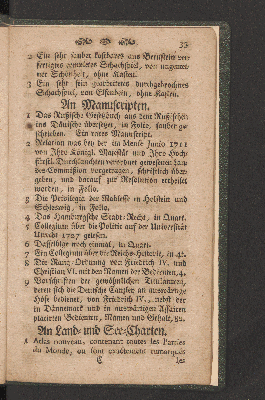 33
2 Ein sehr sauber kostbares aus Bernstein ver-
fertigtes completes Schachspiel, von ungemei-
ner Schönheit, ohne Kasten.
3 Ein sehr fein gearbeitetes durchgebrochnes
Schachspiel, von Elfenbein, ohne Kasten.
An Manuscripten.
1 Das Rußische Gesetzbuch aus dem Rußischen
ins Dänische übersetzet, in Folio, sauber ge-
schrieben. Ein rares Manuscript.
2 Relation was bey der im Monath Junio 1711
von Ihro Königl. Majestät und Ihro Hoch-
fürstl. Durchlauchten verordnet gewesenen Lan-
des-Commission vorgetragen, schriftlich über-
geben, und darauf zur Resolution ertheilet
worden, in Folio.
3 Die Privilegia der Noblesse in Holstein und
Schleswig, in Folio.
4 Das Hamburgsche Stadt-Recht, in Quart.
5 Collegium über die Politic auf der Universität
Utrecht 1707 gelesen.
6 Dasselbige noch einmal, in Quart.
7 Ein Collegium über die Reichs-Historie, in 4t.
8 Die Rang-Ordnung von Friedrich IV. und
Christian VI. mit den Namen der Bedienten, 4.
9 Vorschriften der gewöhnlichen Titulaturen,
deren sich die Deutsche Canzley an auswärtige
Höfe bedienet, von Friedrich IV., nebst der
in Dännemark und in auswärtigen Affairen
placirten Bedienten, Namen und Gehalt, 8v.
An Land- und See-Charten.
1 Atlas nouveau, contenant toutes les Parties
du Monde, ou sont exactement remarqués
C les